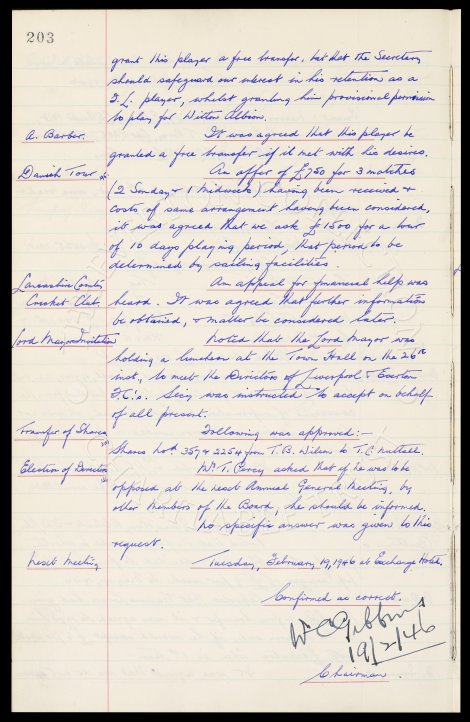 203
grant this player a free transfer, but that the Secretary
should safeguard our interest in his retention as a
F.L. player, whilst granting him provisional permission
to play for Witton Albion.
A. Barber. It was agreed that this player be
granted a free transfer if it met with his desires.
Danish Tour An offer of £750 for 3 matches
(2 Sunday & 1 Midweek) having been received &
costs of same arrangement having been considered,
it was agreed that we ask £1500 for a tour
of 10 days playing period, that period to be
determined by sailing facilities.
Lancashire County An appeal for financial help was
Cricket Club. heard. It was agreed that further information
be obtained, & matter be considered later.
Lord Mayor Invitation Noted that the Lord Mayor was
holding a luncheon at the Town Hall on the 26th
inst., to meet the Directors of Liverpool & Everton
F.C's. Secy was instructed to accept on behalf
of all present.
Transfer of Shares Following was approved:-
Shares Nos. & 2254 from T.B. Wilson to T.C. Nuttall.
Election of Directors Mr. T. Percy asked that if he was to be
opposed at the next Annual General Meeting, by
other members of the Board, he should be informed.
No specific answer was given to this
request.
Next Meeting Tuesday, February 19, 1946 at Exchange Hotel.
Confirmed as correct.
W C Gibbins
19/2/46
Chairman.